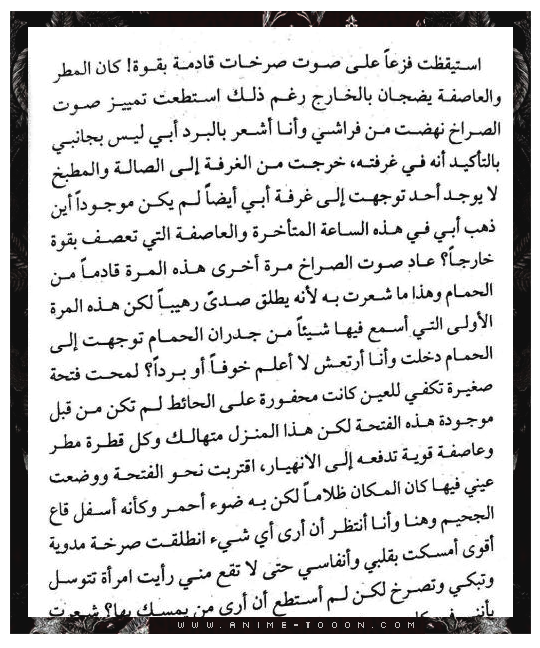 استيقظت فزعاً على صوت صرخات قادمة بقوة! كان المطر
والعاصفة يضجان بالخارج رغم ذلك استطعت تمييز صوت
الصراخ نهضت من فراشي وأنا أشعر بالبرد أبي ليس بجانبي
بالتأكيد أنه في غرفته، خرجت من الغرفة إلى الصالة والمطبخ
لا يوجد أحد توجهت إلى غرفة أبي أيضاً لم يكن موجوداً أين
ذهب أبي في هذه الساعة المتأخرة والعاصفة التي تعصف بقوة
خارجاً؟ عاد صوت الصراخ مرة أخرى هذه المرة قادماً من
الحمام وهذا ما شعرت به لأنه يطلق صدىً رهيباً لكن هذه المرة
الأولى التي أسمع فيها شيئاً من جدران الحمام توجهت إلى
الحمام دخلت وأنا أرتعش لا أعلم خوفاً أو برداً؟ لمحت فتحة
صغيرة تكفي للعين كانت محفورة على الحائط لم تكن من قبل
موجودة هذه الفتحة لكن هذا المنزل متهالك وكل قطرة مطر
وعاصفة قوية تدفعه إلى الانهيار، اقتربت نحو الفتحة ووضعت
عيني فيها كان المكان ظلاماً لكن به ضوء أحمر وكأنه أسفل قاع
الجحيم وهنا وأنا أنتظر أن أرى أي شيء انطلقت صرخة مدوية
أقوى أمسكت بقلبي وأنفاسي حتى لا تقع مني رأيت امرأة تتوسل
وتبكي وتصرخ لكن لم أستطع أن أرى من يمسك بها؟ شعرت
WWW.ANIME-TOOON.COM